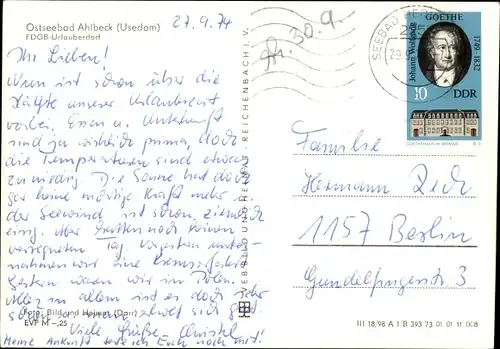 Ostseebad Ahlbeck (Usedom)
FDGB-Urlauberdorf
27.9.74
Ihr Lieben!
Nun ist schon über die
Hälfte unserer Urlaubszeit
vorbei. Essen u. Unterkunft
sind ja wirklich prima, doch
die Temperaturen sind etwas
zu niedrig. Die Sonne hat doch
gar keine richtige Kraft mehr u.
der Seewind ist schon ziemlich
eisig. Aber hatten noch keinen
verregneten Tag. Vorgestern unter-
nahmen wir eine Kremserfahrt
gestern waren wir in Polen.
Alles in allem ist es doch sehr
schön u. man erholt sich gut.
Viele Grüße - Christel
Meine Ankunft teile ich Euch noch mit!
Foto: Bild und Heimat (Darr)
EVP M -,25
VEB BILD UND HEIMAT · REICHENBACH I. V.
30.9.
SEEBAD
GOETHE
Johann Wolfgang
1749-1832
10
DDR
GOETHEHAUS IN WEIMAR
Familie
Hermann
1157 Berlin
3
III 18/98 A 1/B 393/73 01 01 11 008